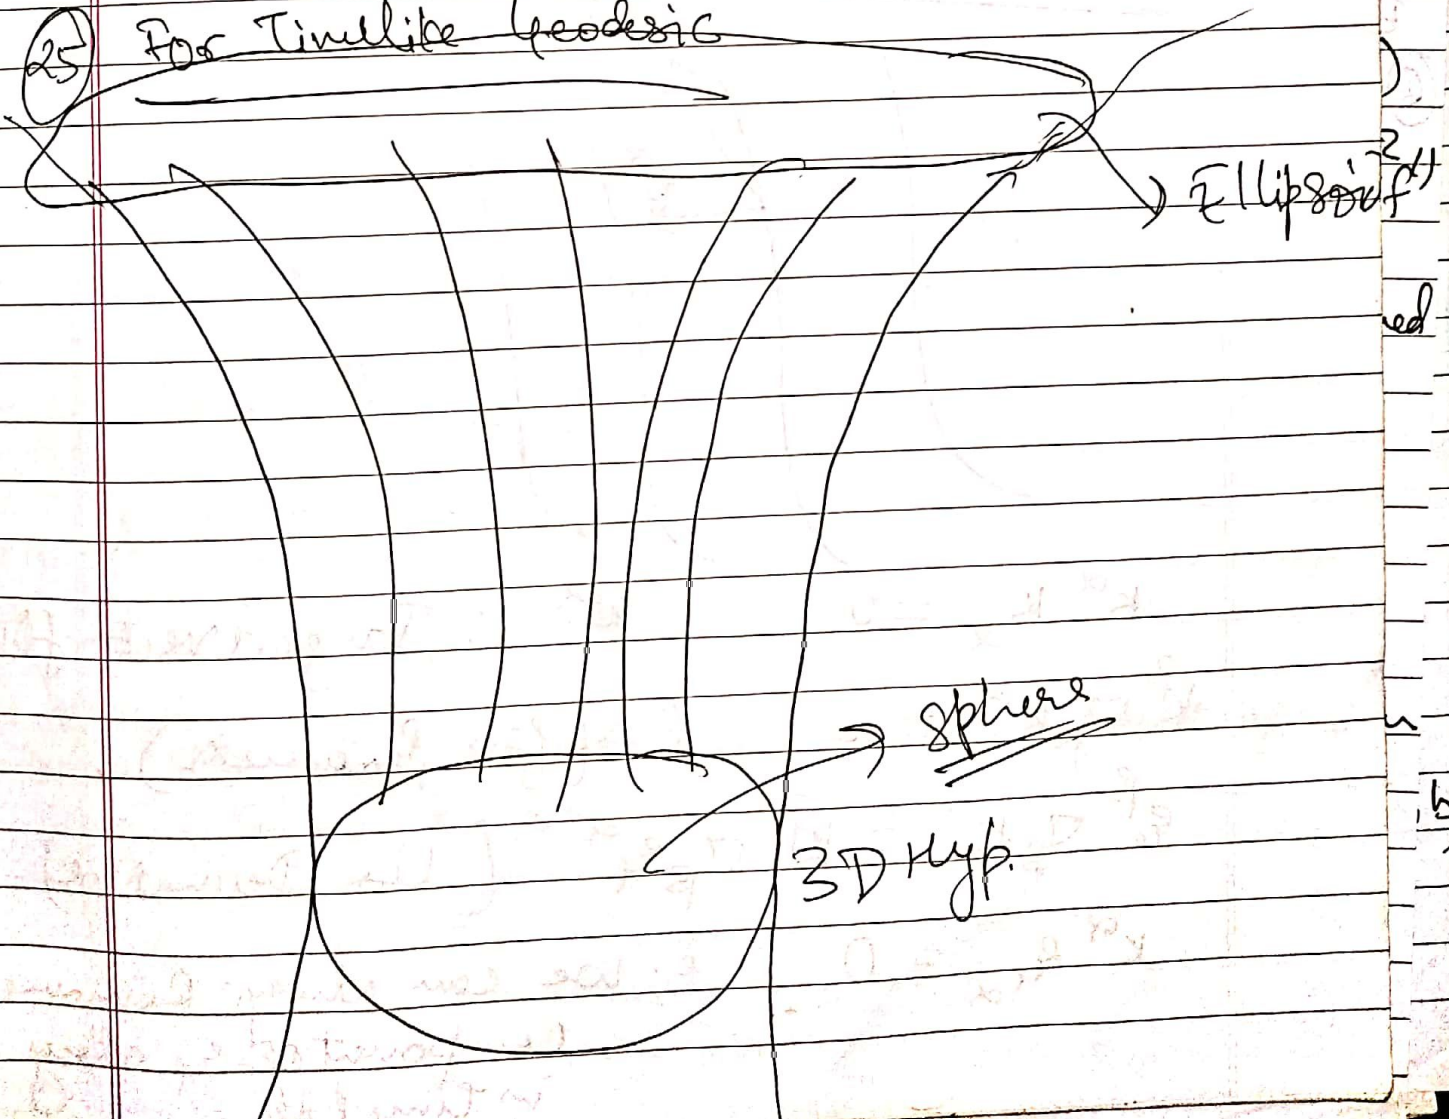 25 For Timelike Geodesic
Ellipsoid
ed
Sphere
3D Hyp.